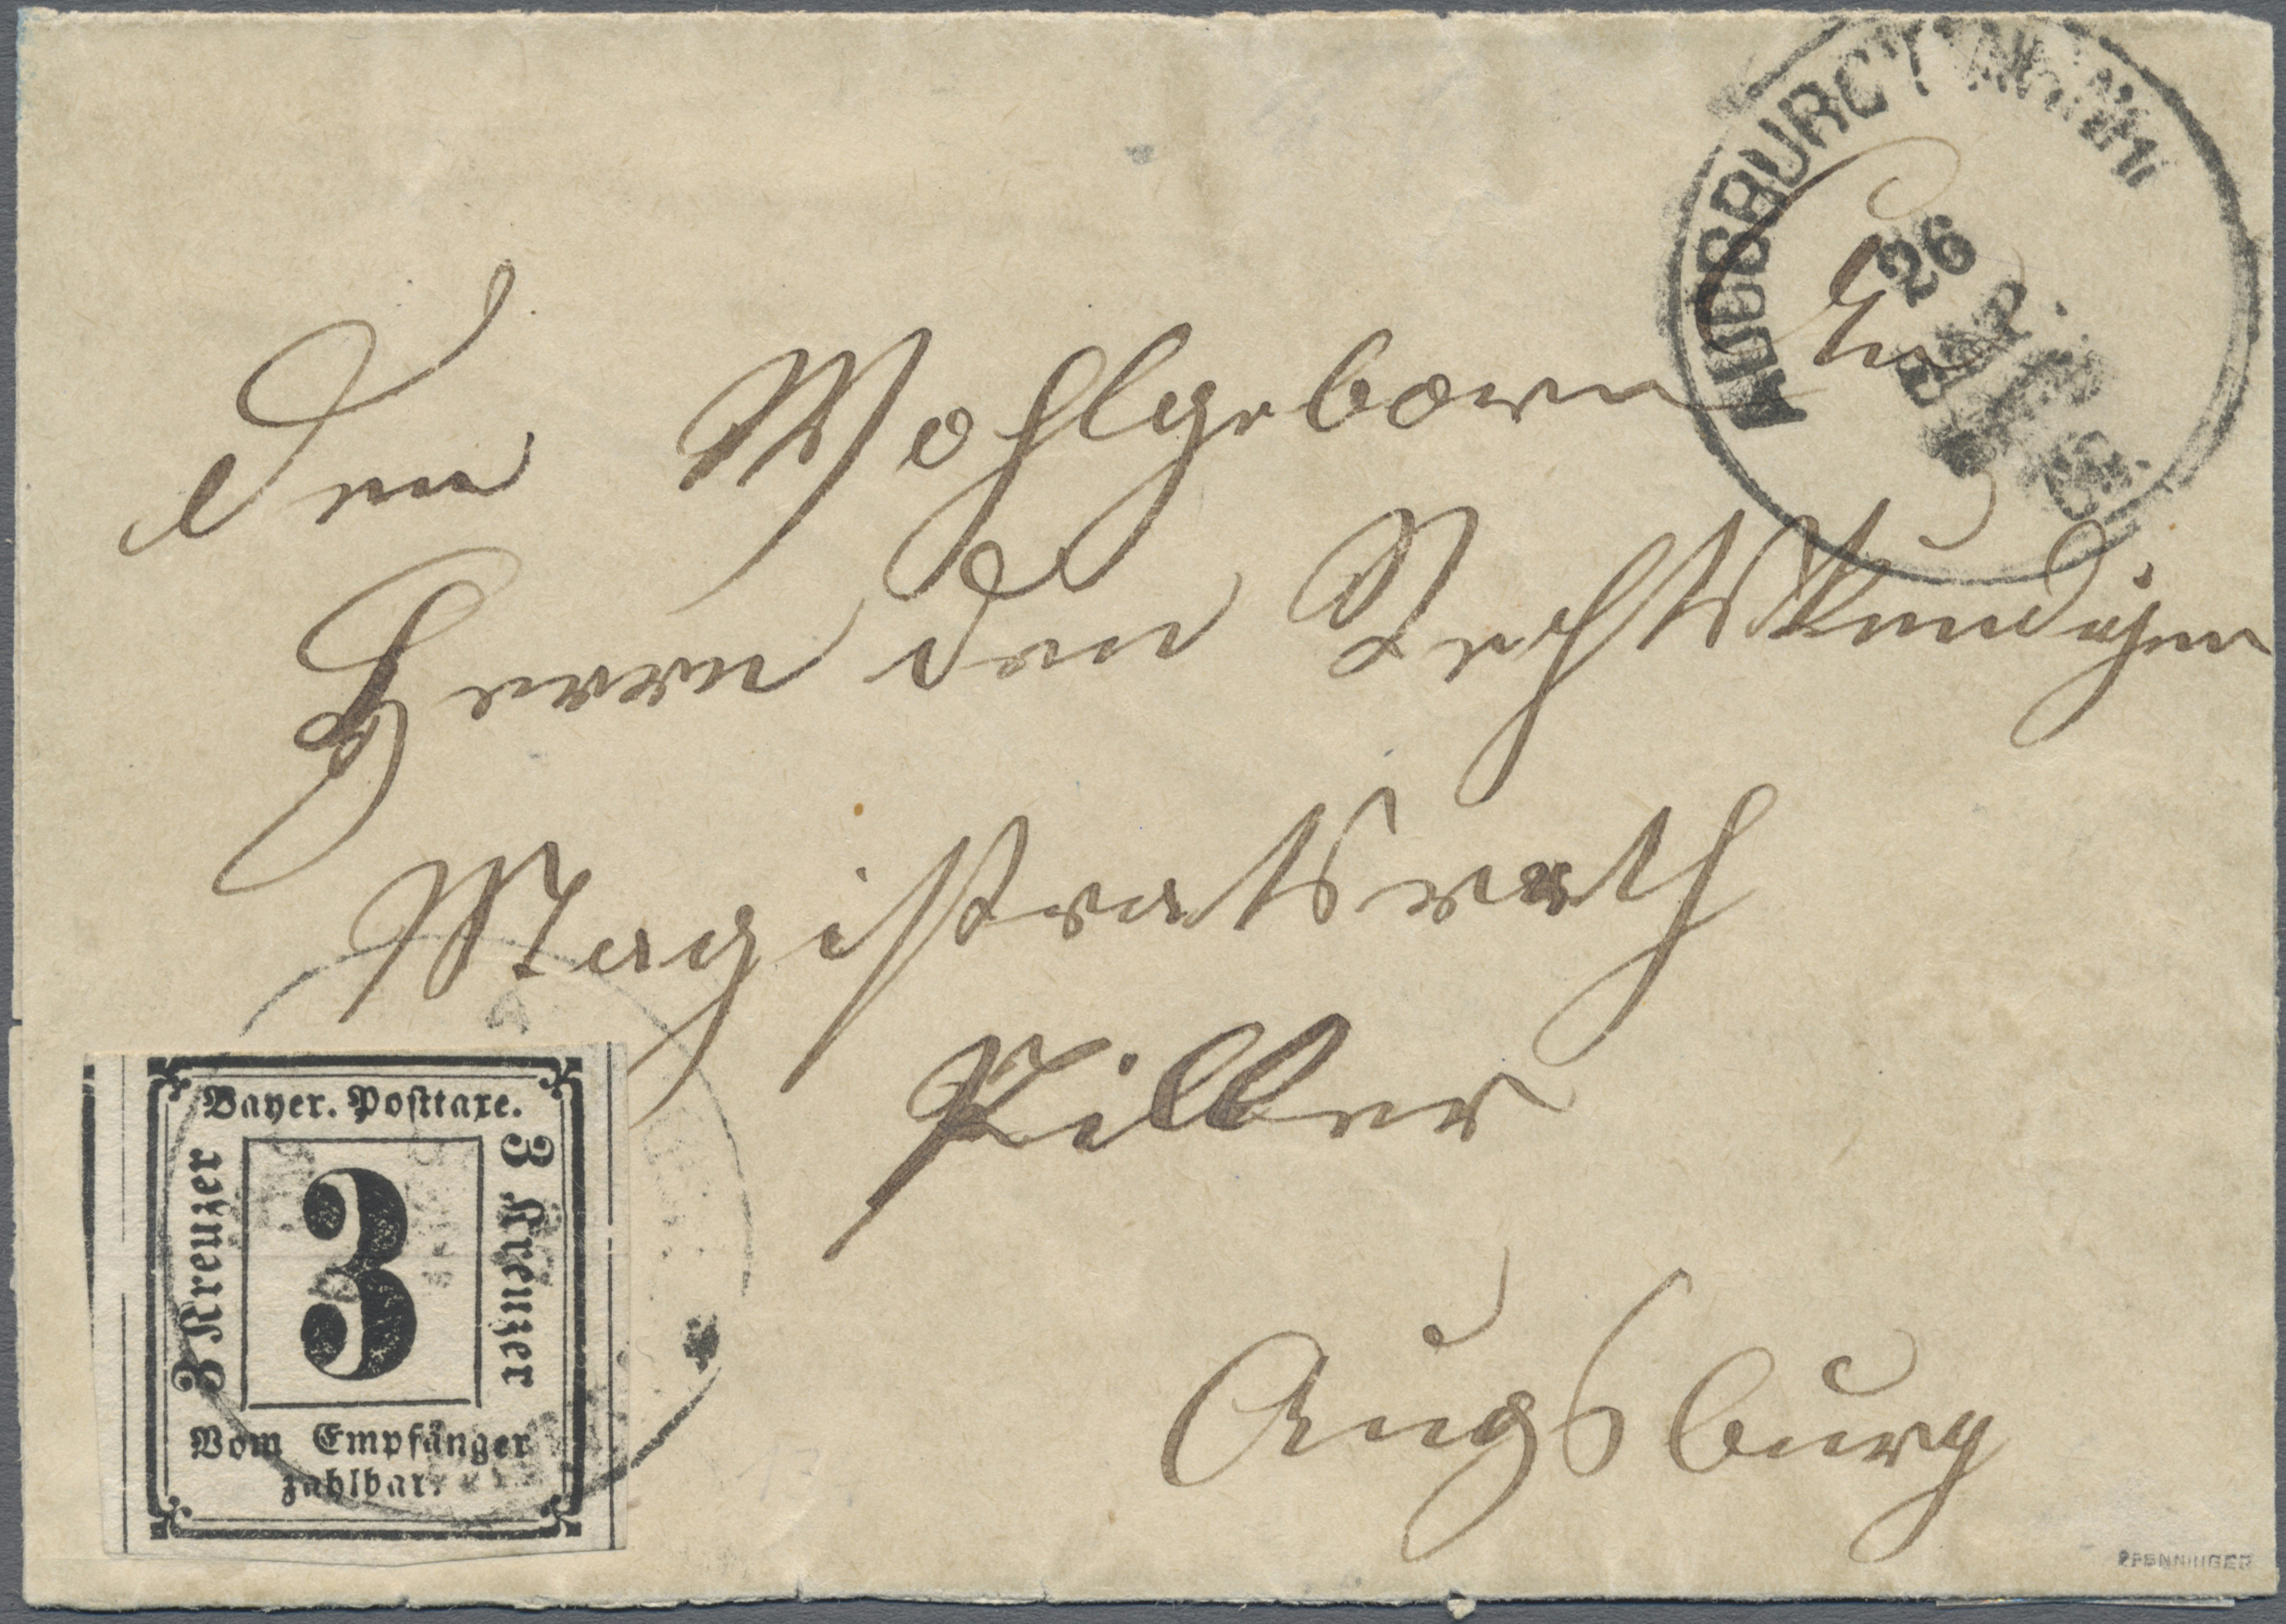 AUGSBURG
26
SEP.
Den Wohlgebornen
Herrn den Rechtskundigen
Magistratsrath
Filler
Augsburg
Bayer. Posttaxe.
3 Kreuzer
3
3 Kreuzer
Vom Empfänger
zahlbar.
PFENNINGER